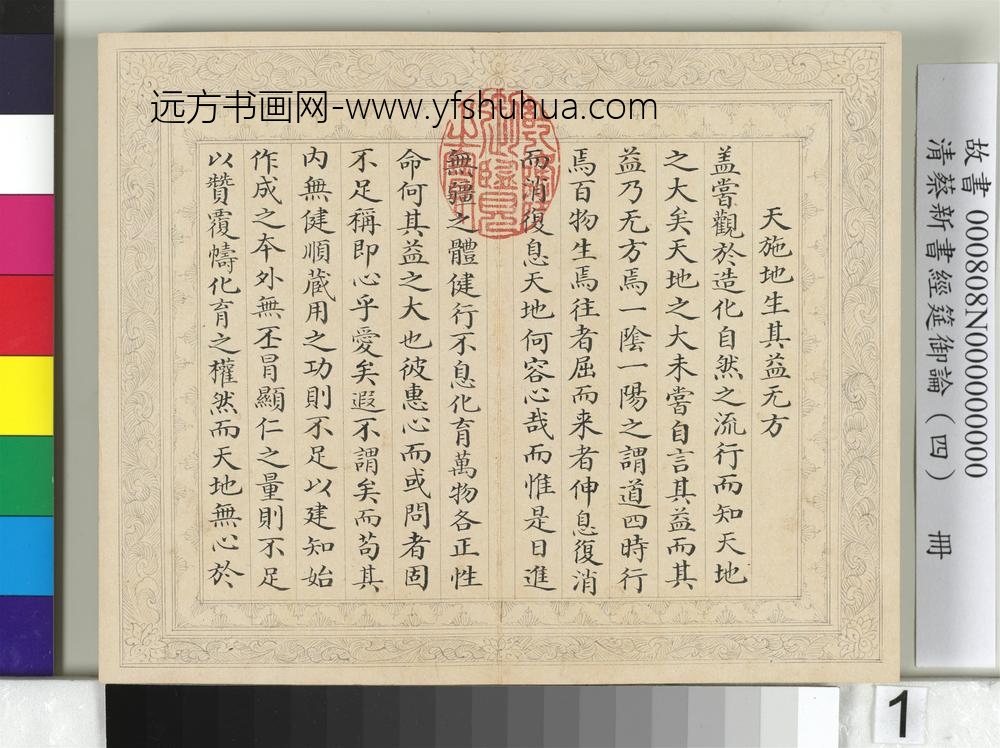 远方书画网-www.yfshuhua.com
天施地生其益无方
盖嘗觀於造化自然之流行而知天地
之大矣天地之大未嘗自言其益而其
益乃无方焉一陰一陽之謂道四時行
焉百物生焉往者屈而来者伸息復消
而消復息天地何容心哉而惟是日進
無疆之體健行不息化育萬物各正性
命何其益之大也彼惠心而或問者固
不足稱即心乎愛矣遐不謂矣而苟其
内無健順蔵用之功則不足以建知始
作成之本外無丕冐顯仁之量則不足
以贊覆幬化育之權然而天地無心於
故書 000808N000000000
清蔡新書經筵御論（四） 冊
1